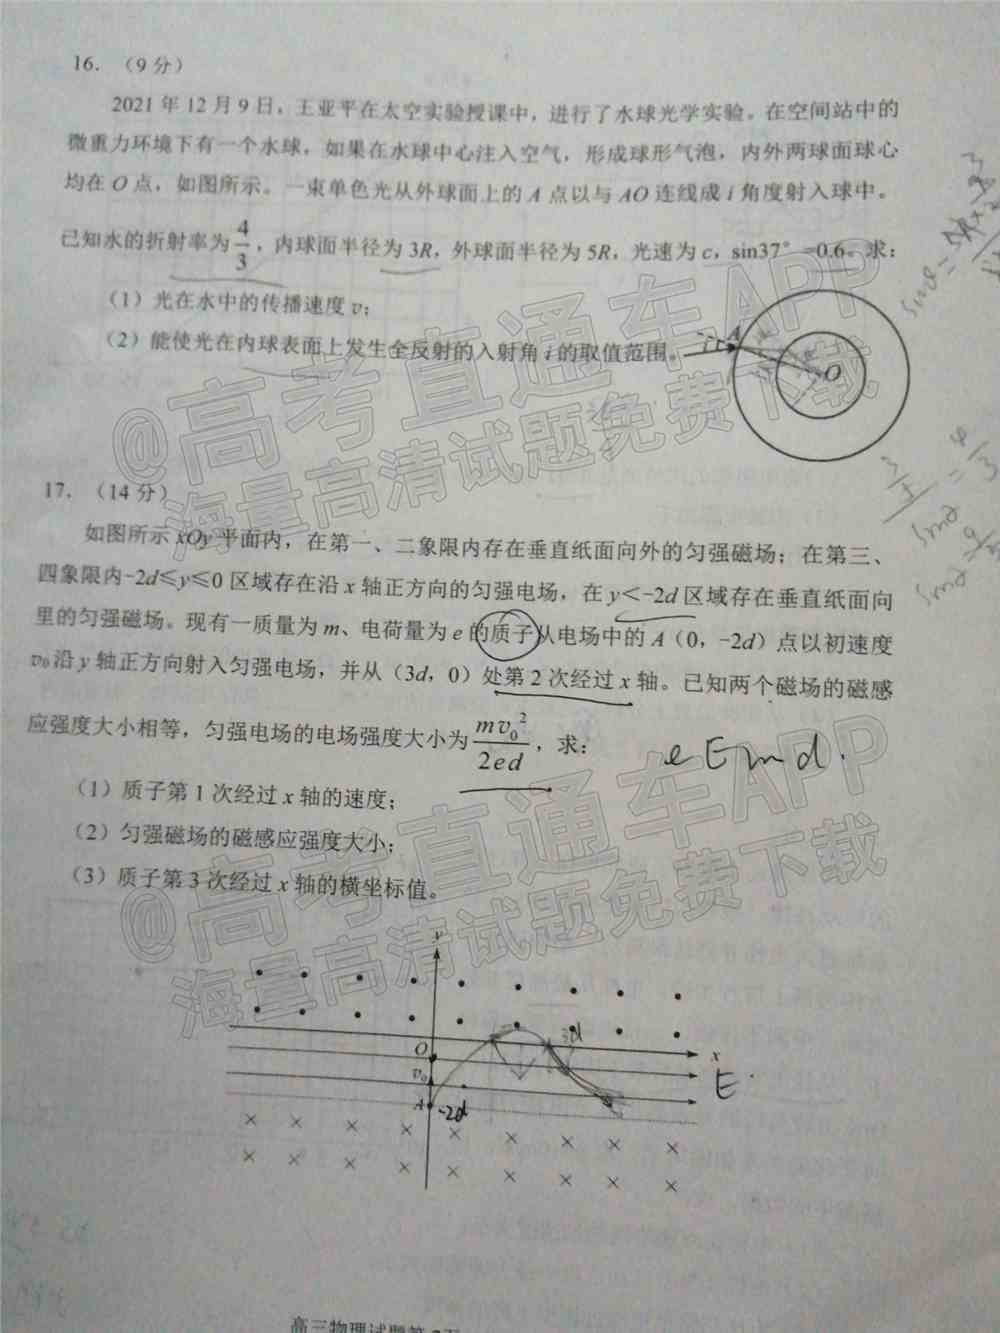 16. （9 分）
2021 年 12 月 9 日，王亚平在太空实验授课中，进行了水球光学实验。在空间站中的
微重力环境下有一个水球，如果在水球中心注入空气，形成球形气泡，内外两球面球心
均在 O 点，如图所示。一束单色光从外球面上的 A 点以与 AO 连线成 i 角度射入球中。
已知水的折射率为 4/3，内球面半径为 3R，外球面半径为 5R，光速为 c，sin37°=0.6。求：
（1）光在水中的传播速度 v；
（2）能使光在内球表面上发生全反射的入射角 i 的取值范围。
A
O
@高考直通车APP
海量高清试题免费下载
17. （14 分）
如图所示 xOy 平面内，在第一、二象限内存在垂直纸面向外的匀强磁场；在第三、
四象限内-2d≤y≤0 区域存在沿 x 轴正方向的匀强电场，在 y＜-2d 区域存在垂直纸面向
里的匀强磁场。现有一质量为 m、电荷量为 e 的质子从电场中的 A（0，-2d）点以初速度
v₀ 沿 y 轴正方向射入匀强电场，并从（3d，0）处第 2 次经过 x 轴。已知两个磁场的磁感
应强度大小相等，匀强电场的电场强度大小为 mv₀²/2ed，求：
eEmd.
（1）质子第 1 次经过 x 轴的速度；
（2）匀强磁场的磁感应强度大小；
（3）质子第 3 次经过 x 轴的横坐标值。
@高考直通车APP
海量高清试题免费下载
y
3d
O
x
v₀
E
A
-2d
高三物理试题第